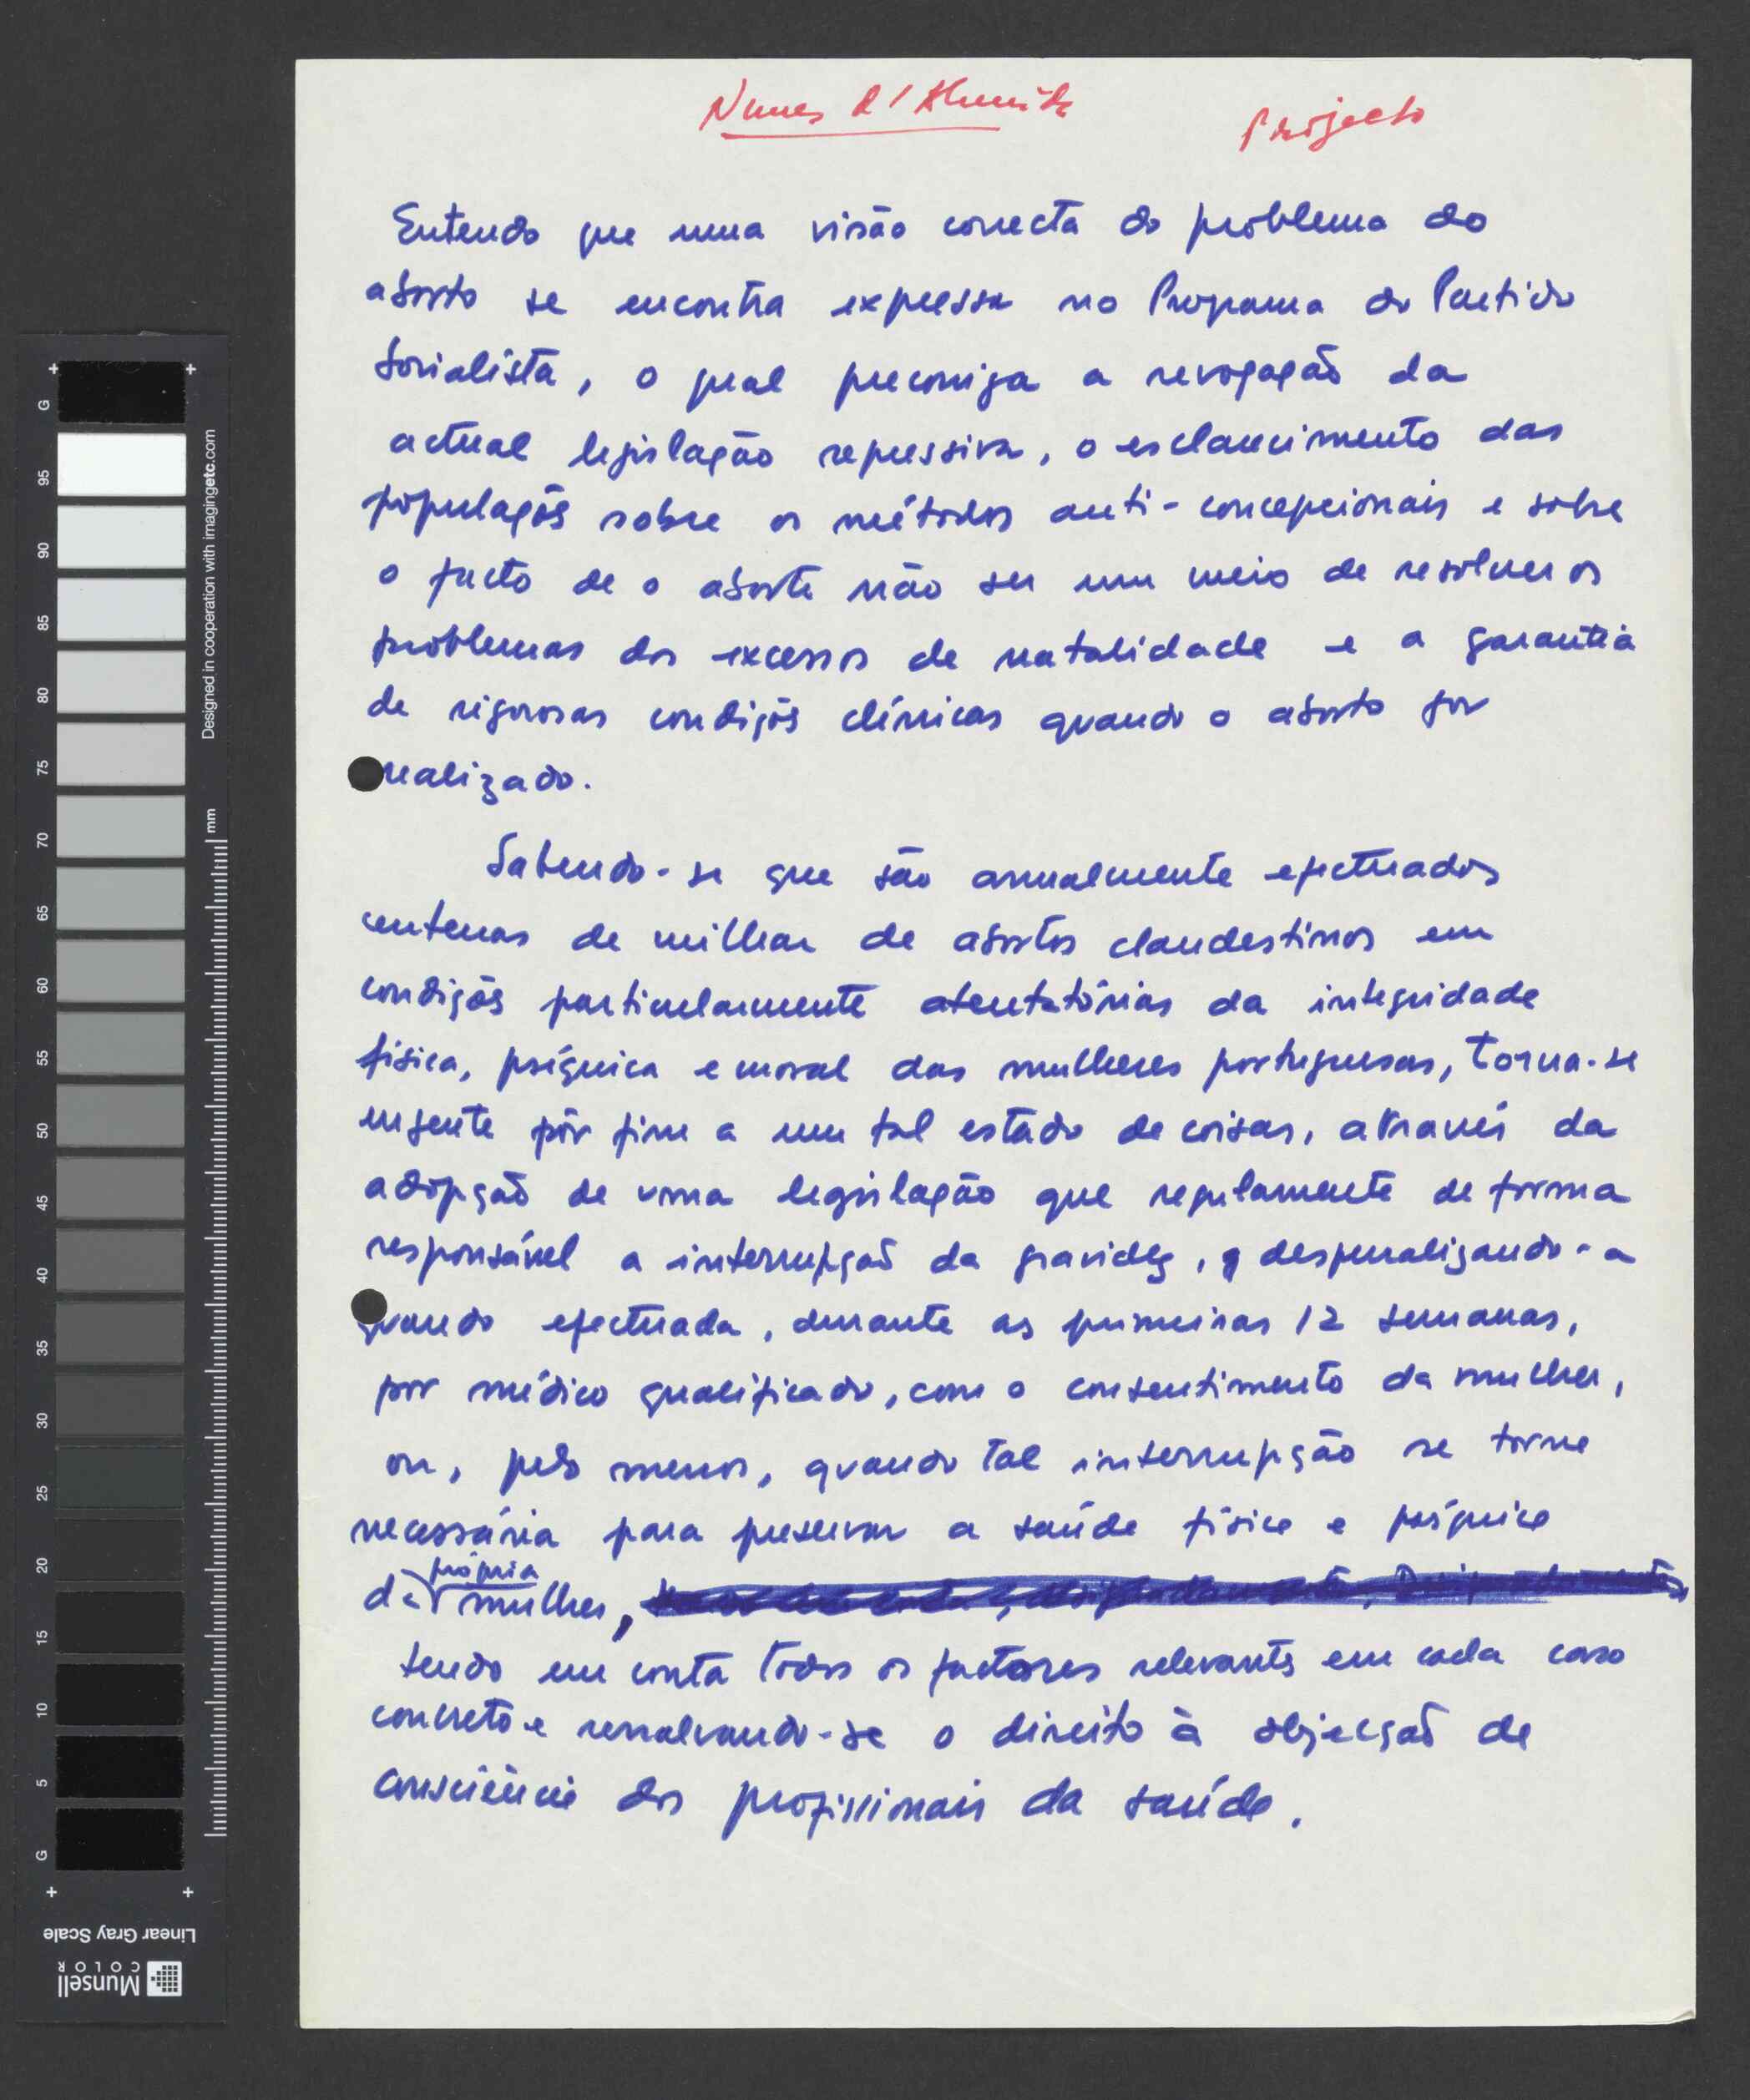 Nunes d'Almeida
Projecto
Entendo que uma visão correcta do problema do
aborto se encontra expressa no Programa do Partido
Socialista, o qual preconiza a revogação da
actual legislação repressiva, o esclarecimento das
populações sobre os métodos anti-concepcionais e sobre
o facto de o aborto não ser um meio de resolver os
problemas dos excessos de natalidade e a garantia
de rigorosas condições clínicas quando o aborto for
realizado.
Sabendo-se que são anualmente efectuados
centenas de milhar de abortos clandestinos em
condições particularmente atentatórias da integridade
física, psíquica e moral das mulheres portuguesas, torna-se
urgente pôr fim a um tal estado de coisas, através da
adopção de uma legislação que regulamente de forma
responsável a interrupção da gravidez, despenalizando-a
quando efectuada, durante as primeiras 12 semanas,
por médico qualificado, com o consentimento da mulher,
ou, pelo menos, quando tal interrupção se torne
necessária para preservar a saúde física e psíquica
da própria mulher,
tendo em conta todos os factores relevantes em cada caso
concreto e ressalvando-se o direito à objecção de
consciência dos profissionais da saúde.
G
95
90
85
80
75
70
65
60
55
50
45
40
35
30
25
20
15
10
5
G
Designed in cooperation with imagingetc.com
mm
Linear Gray Scale
Munsell
COLOR